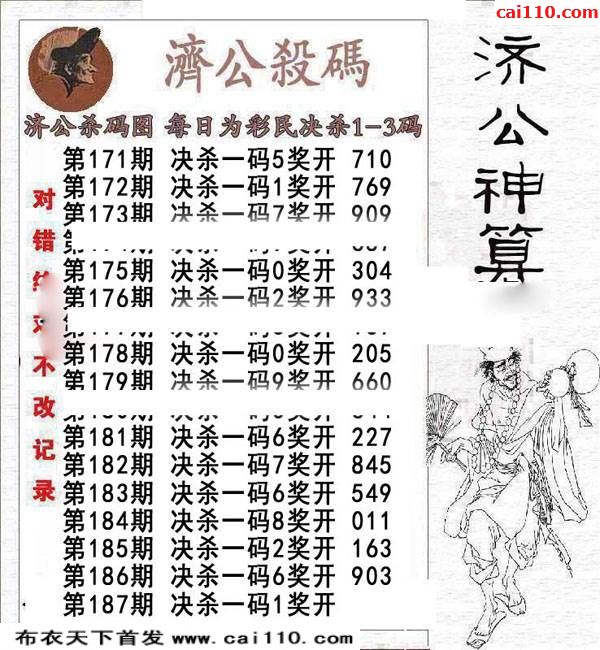 cai110.com
濟公殺碼
济公杀码图 每日为彩民决杀1-3码
第171期 决杀一码5奖开 710
第172期 决杀一码1奖开 769
第173期 决杀一码7奖开 909
第175期 决杀一码0奖开 304
第176期 决杀一码2奖开 933
第178期 决杀一码0奖开 205
第179期 决杀一码9奖开 660
第181期 决杀一码6奖开 227
第182期 决杀一码7奖开 845
第183期 决杀一码6奖开 549
第184期 决杀一码8奖开 011
第185期 决杀一码2奖开 163
第186期 决杀一码6奖开 903
第187期 决杀一码1奖开
对错
不改记录
济公神算
布衣天下首发 www.cai110.com